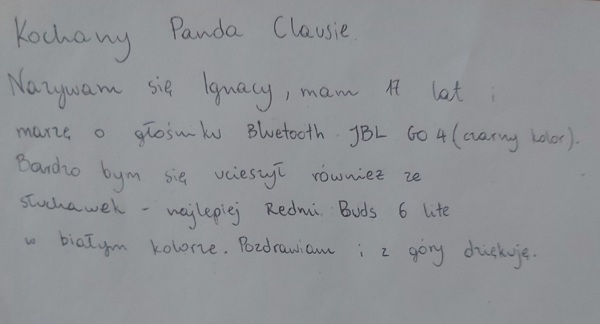 Kochany Panda Clausie.
Nazywam się Ignacy, mam 17 lat i
marzę o głośniku Bluetooth JBL GO 4 (czarny kolor).
Bardzo bym się ucieszył również ze
słuchawek - najlepiej Redmi Buds 6 lite
w białym kolorze. Pozdrawiam i z góry dziękuję.